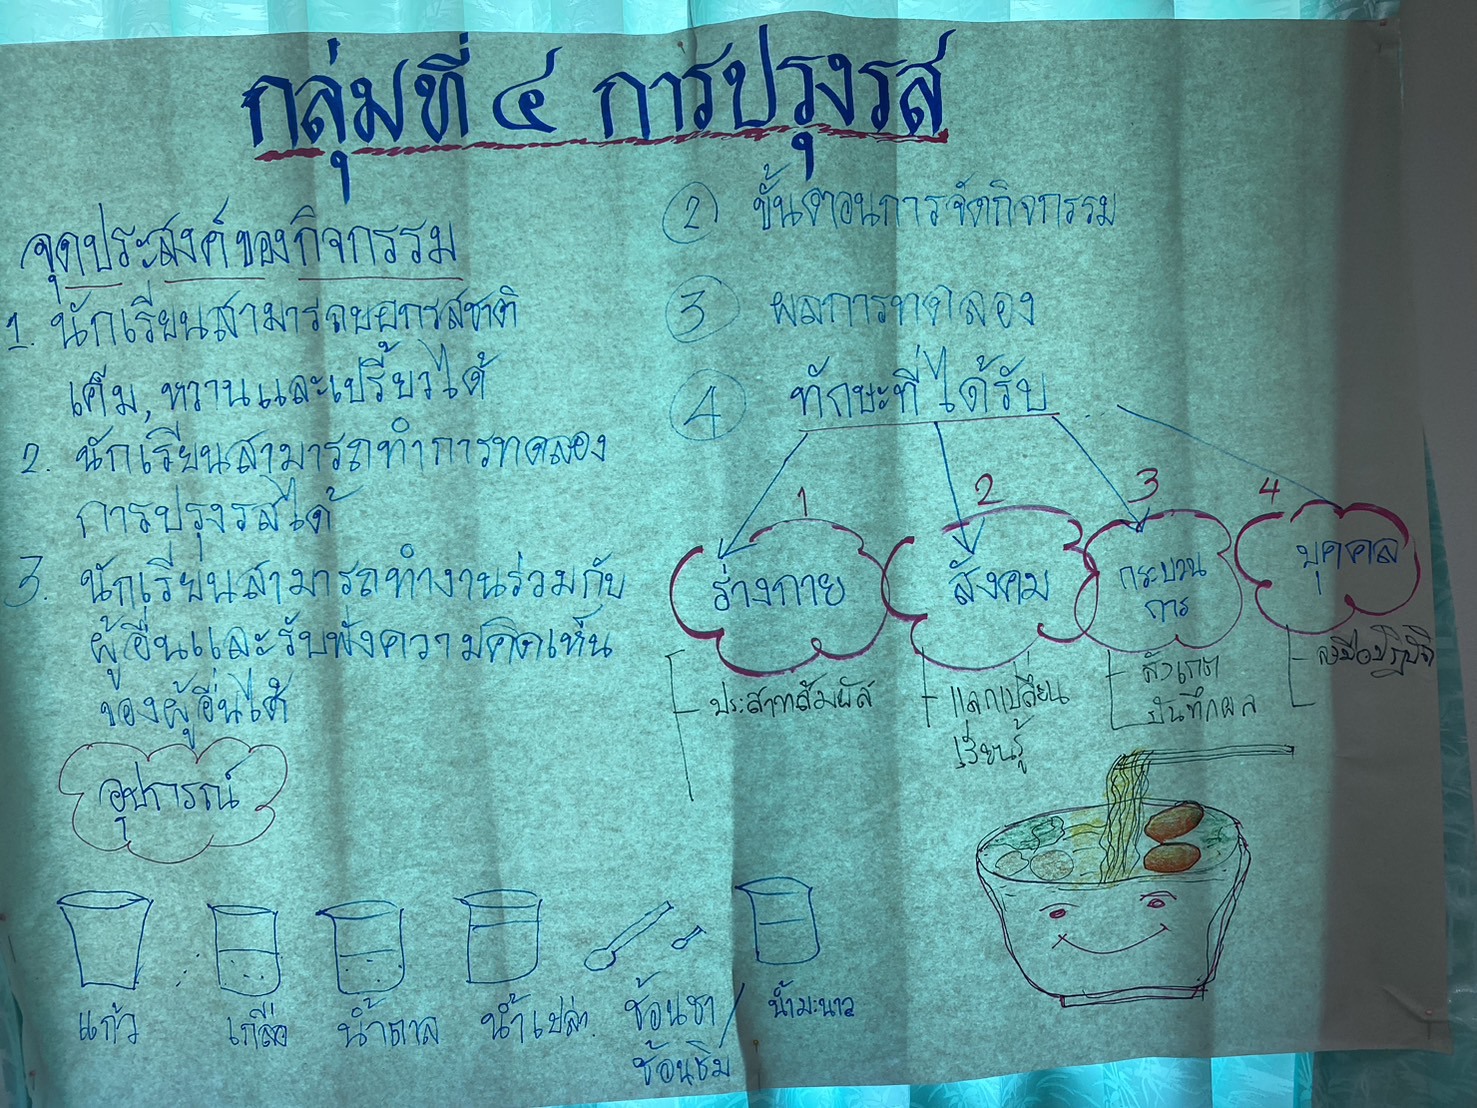 กลุ่มที่ ๔ การปรุงรส
จุดประสงค์ของกิจกรรม
1. นักเรียนสามารถบอกรสชาติ
เค็ม, หวานและเปรี้ยวได้
2. นักเรียนสามารถทำการทดลอง
การปรุงรสได้
3. นักเรียนสามารถทำงานร่วมกับ
ผู้อื่นและรับฟังความคิดเห็น
ของผู้อื่นได้
อุปกรณ์
แก้ว
เกลือ
น้ำตาล
น้ำเปล่า
ช้อนชา /
ช้อนชิม
น้ำมะนาว
2 ขั้นตอนการจัดกิจกรรม
3 ผลการทดลอง
4 ทักษะที่ได้รับ
1
ร่างกาย
ประสาทสัมผัส
2
สังคม
แลกเปลี่ยน
เรียนรู้
3
กระบวน
การ
สังเกต
บันทึกผล
4
บุคคล
ลงมือปฏิบัติ